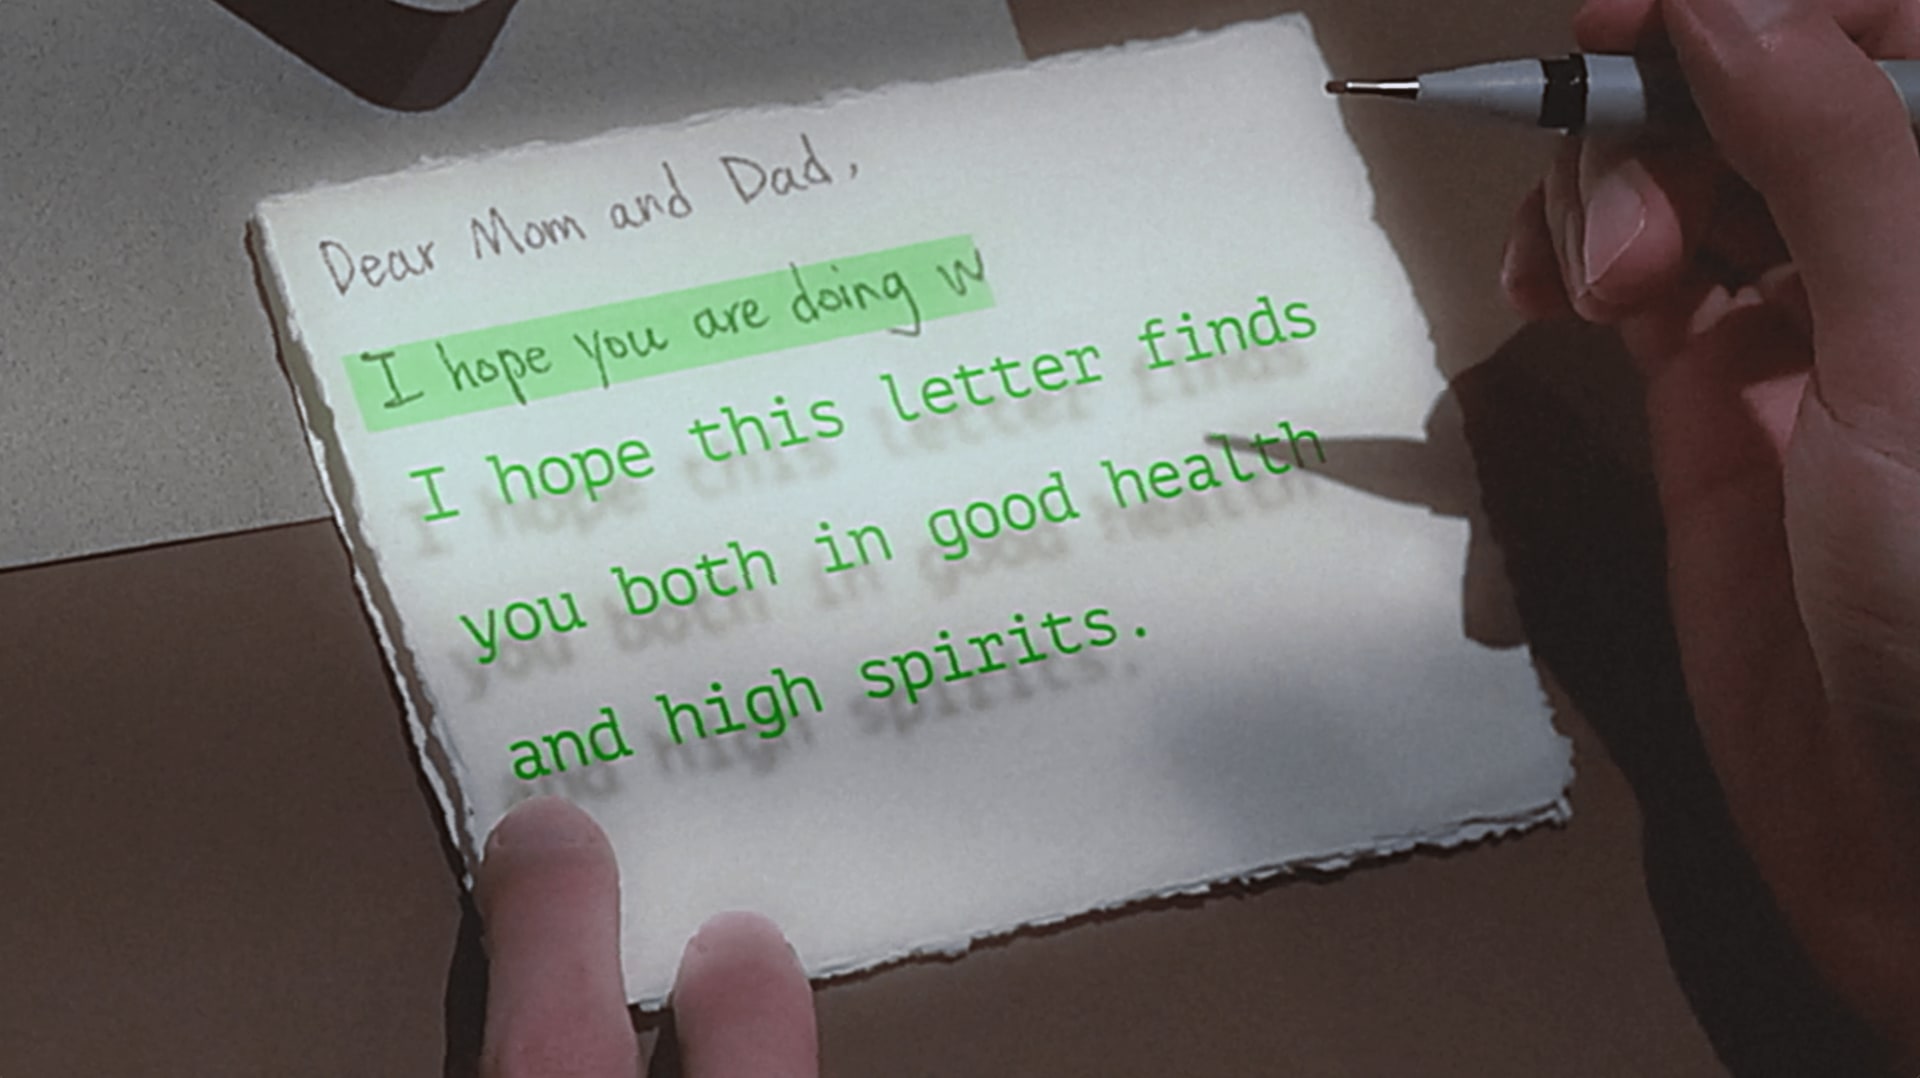 Dear Mom and Dad,
I hope you are doing w
I hope this letter finds
you both in good health
and high spirits.